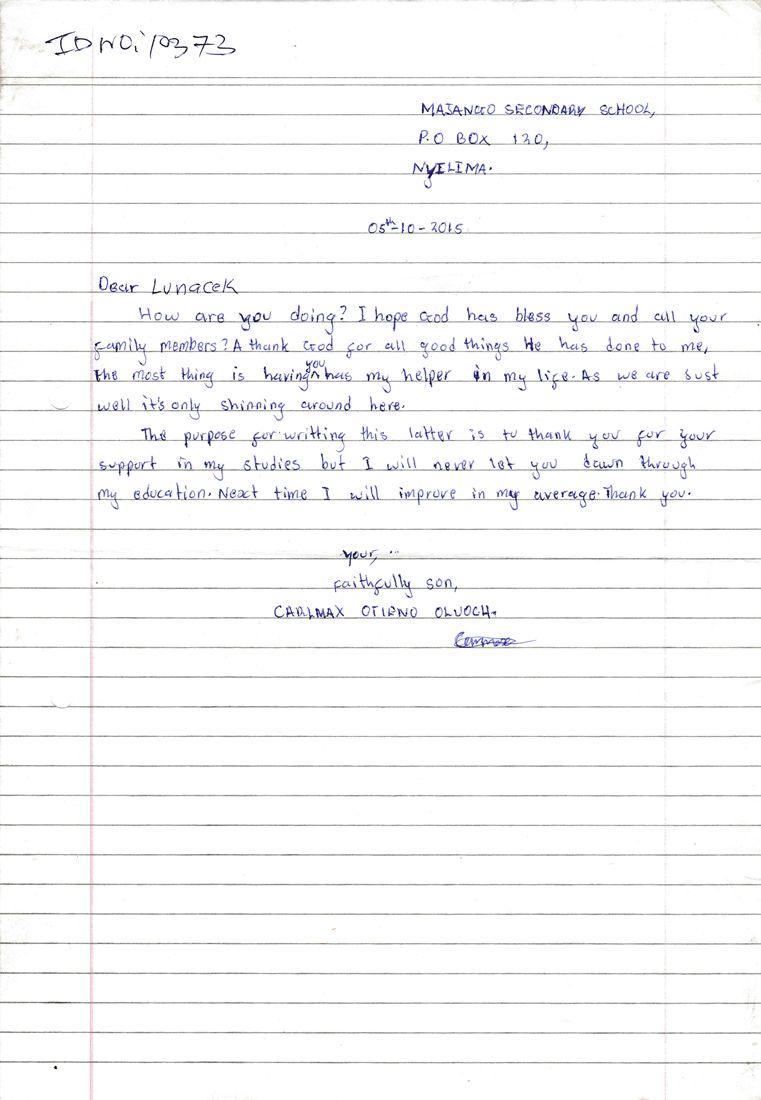 IDNO:/0373
MAJANGO SECONDARY SCHOOL,
P.O BOX 130,
NYILIMA.
05th-10-2015
Dear Lunacek
How are you doing? I hope God has bless you and all your
family members? A thank God for all good things He has done to me,
the most thing is having you has my helper in my life. As we are just
well it's only shinning around here.
The purpose for writting this latter is to thank you for your
support in my studies but I will never let you dawn through
my education. Next time I will improve in my average. Thank you.
your,
faithfully son,
CARLMAX OTIENO OLUOCH.